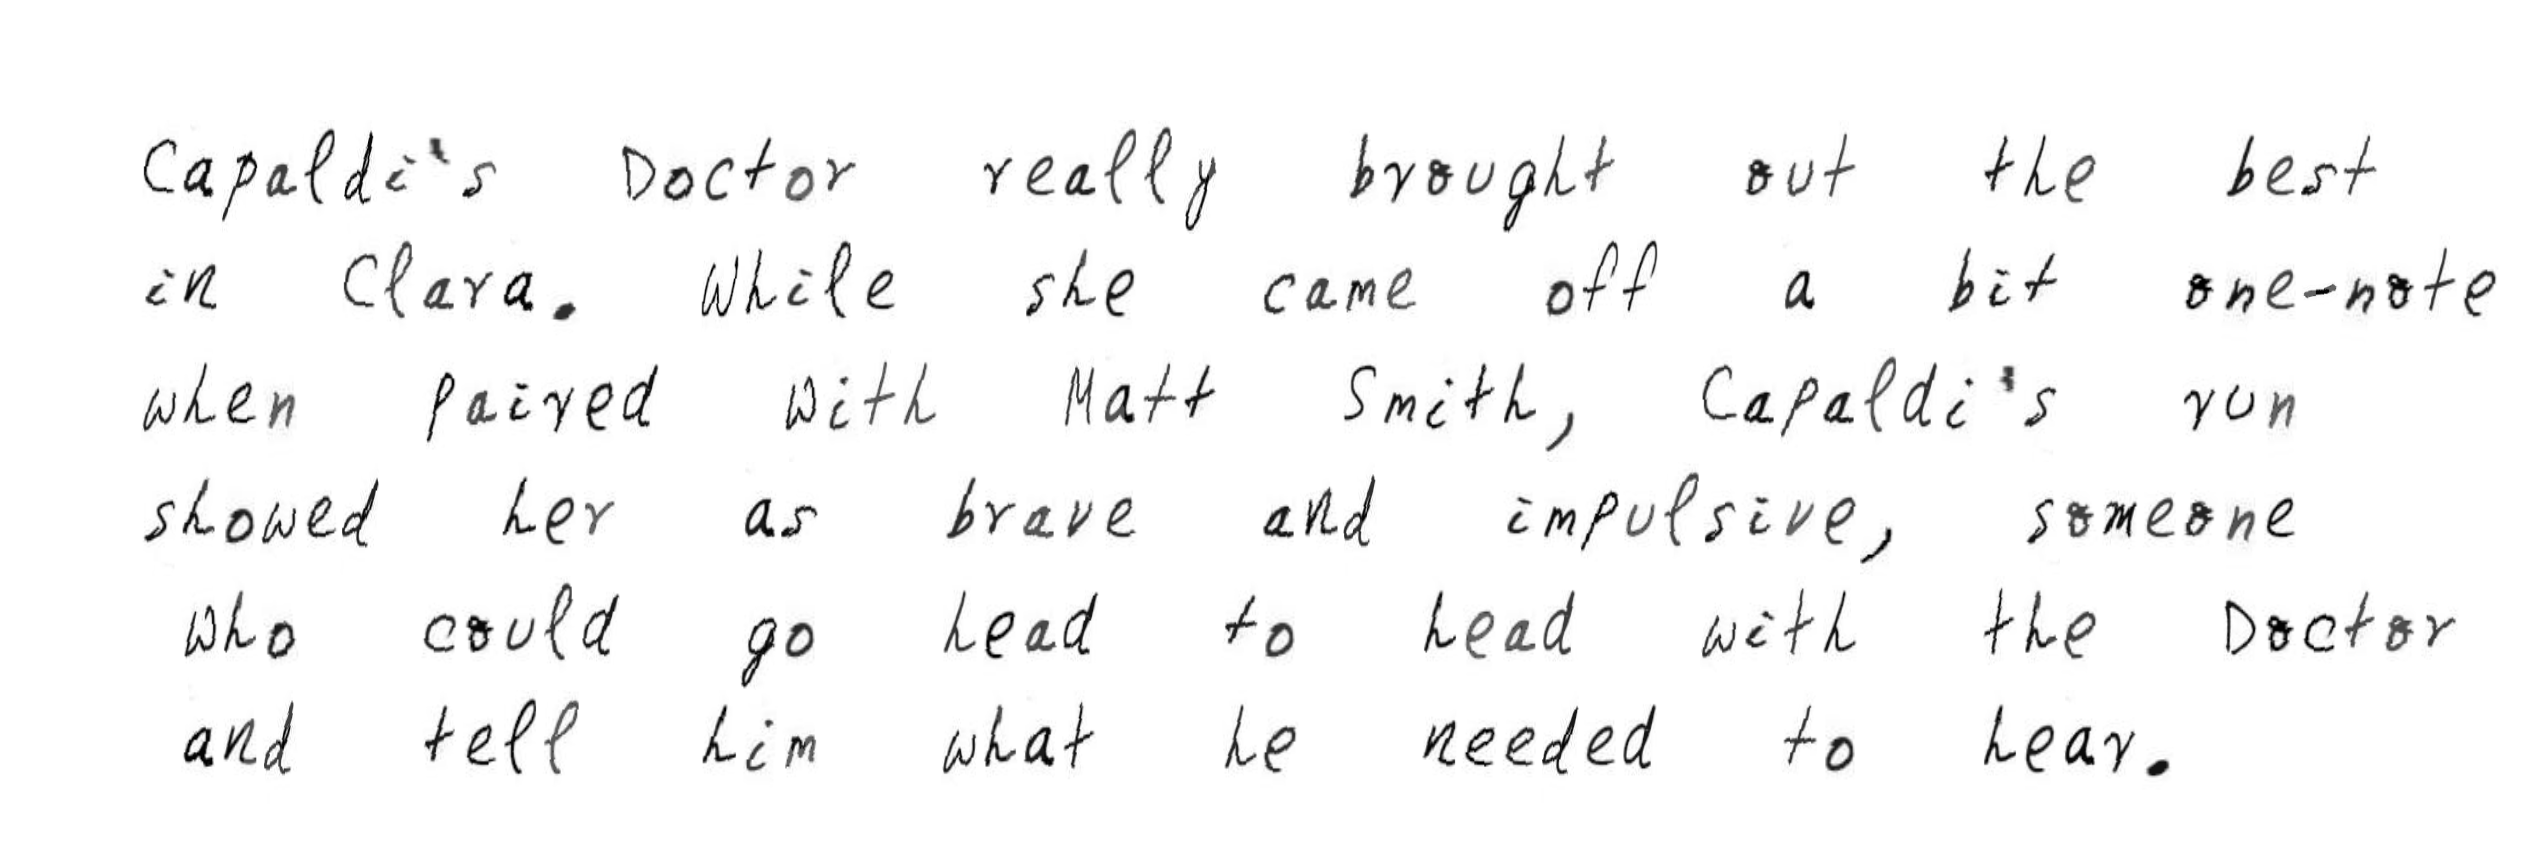 Capaldi's Doctor really brought out the best
in Clara. While she came off a bit one-note
when paired with Matt Smith, Capaldi's run
showed her as brave and impulsive, someone
who could go head to head with the Doctor
and tell him what he needed to hear.